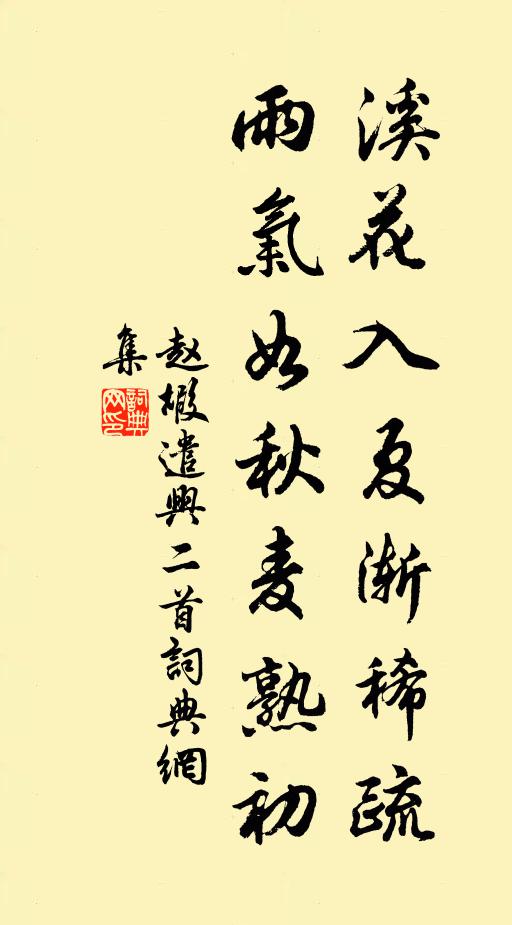 溪花入夏漸稀疏
雨氣如秋麦熟初
赵嘏遣興二首詞典網
集
詞典网印